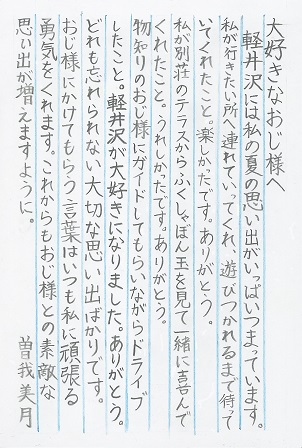 大好きなおじ様へ
軽井沢には私の夏の思い出がいっぱいつまっています。
私が行きたい所へ連れていってくれ、遊びつかれるまで待って
いてくれたこと。楽しかったです。ありがとう。
私が別荘のテラスからふくしゃぼん玉を見て一緒に喜んで
くれたこと。うれしかったです。ありがとう。
物知りのおじ様にガイドしてもらいながらドライブ
したこと。軽井沢が大好きになりました。ありがとう。
どれも忘れられない大切な思い出ばかりです。
おじ様にかけてもらう言葉はいつも私に頑張る
勇気をくれます。これからもおじ様との素敵な
思い出が増えますように。
曽我美月